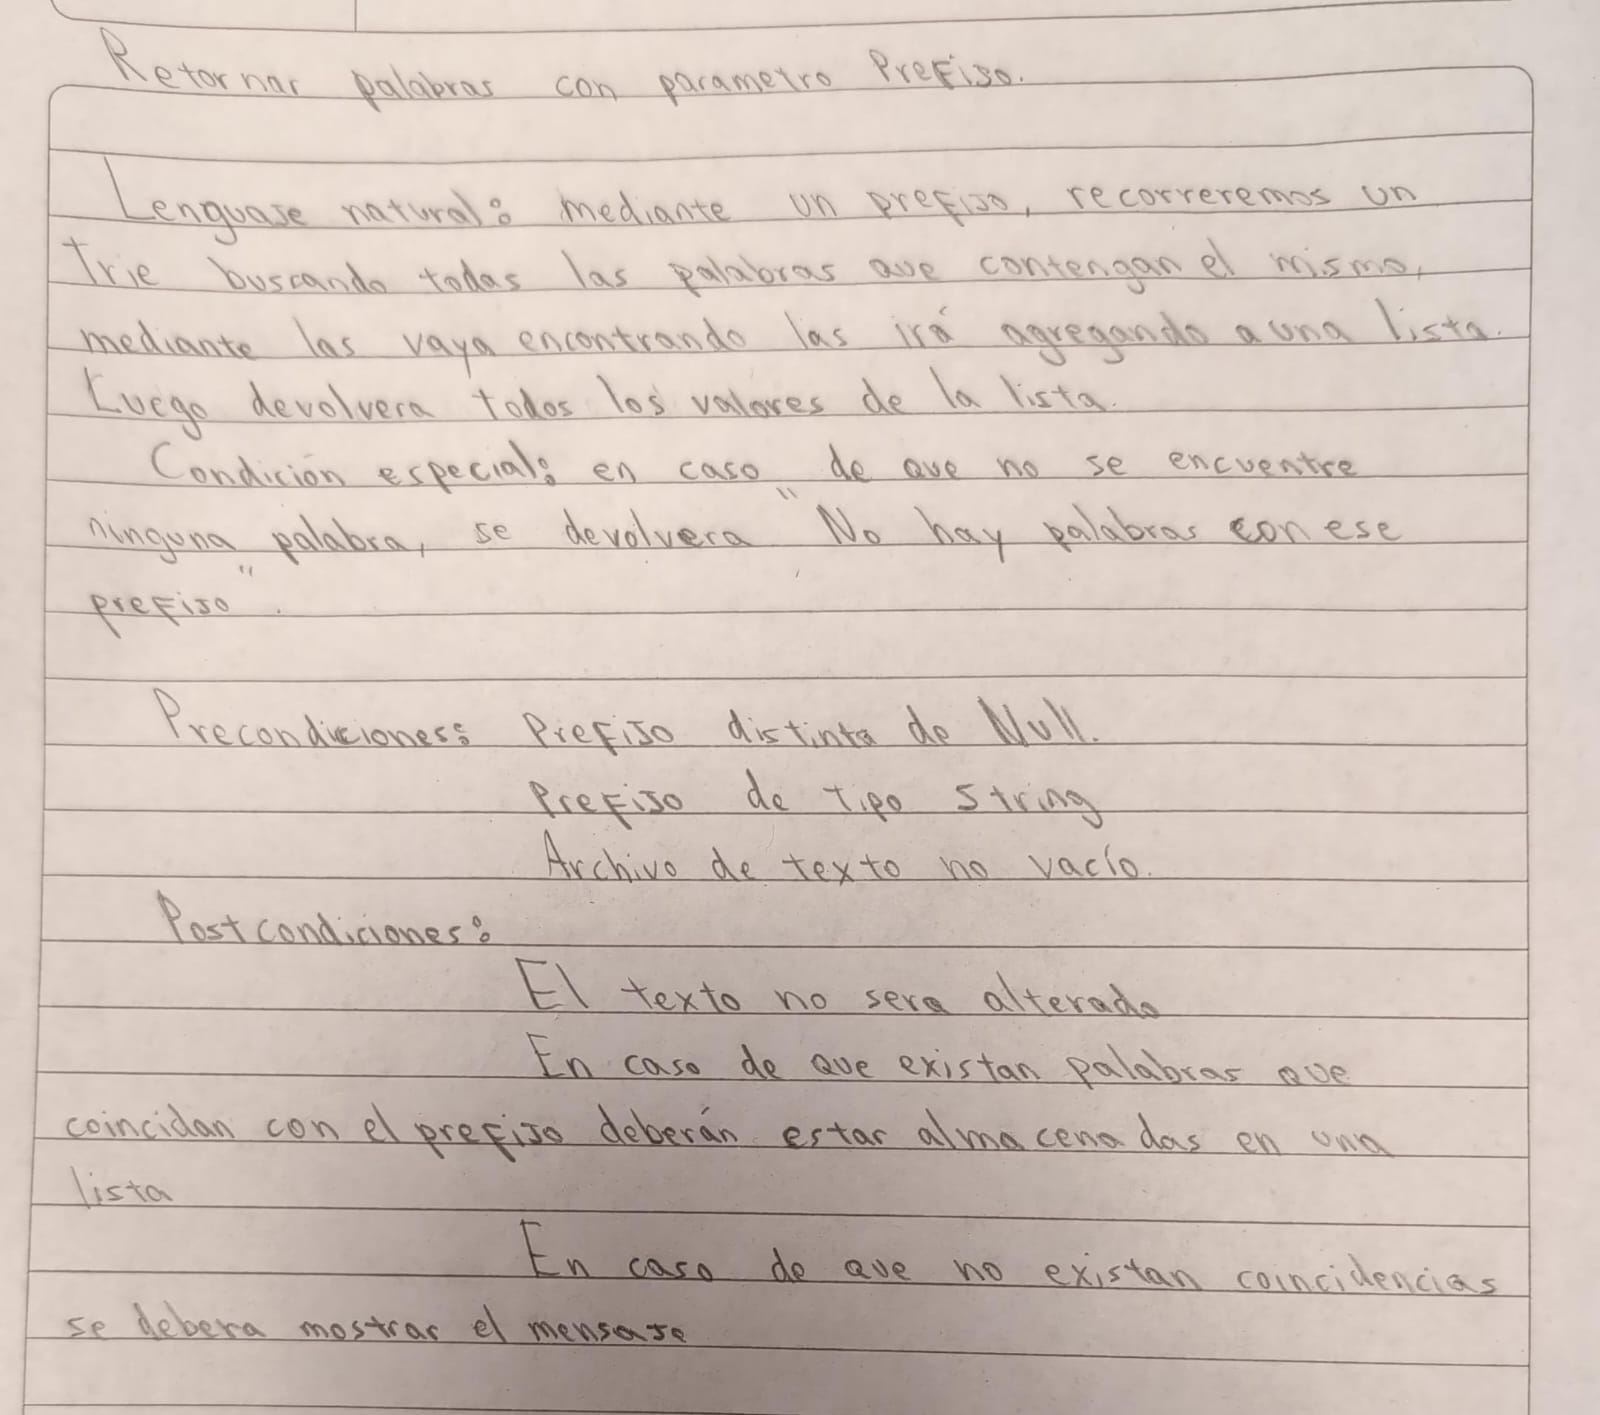 Retornar palabras con parametro Prefijo.
Lenguaje natural: mediante un prefijo, recorreremos un
Trie buscando todas las palabras que contengan el mismo,
mediante las vaya encontrando las irá agregando a una lista.
Luego devolvera todos los valores de la lista.
Condición especial: en caso de que no se encuentre
ninguna palabra, se devolvera "No hay palabras con ese
prefijo".
Precondiciones: Prefijo distinto de Null.
Prefijo de tipo String
Archivo de texto no vacío.
Postcondiciones:
El texto no sera alterado
En caso de que existan palabras que
coincidan con el prefijo deberán estar almacenadas en una
lista
En caso de que no existan coincidencias
se debera mostrar el mensaje